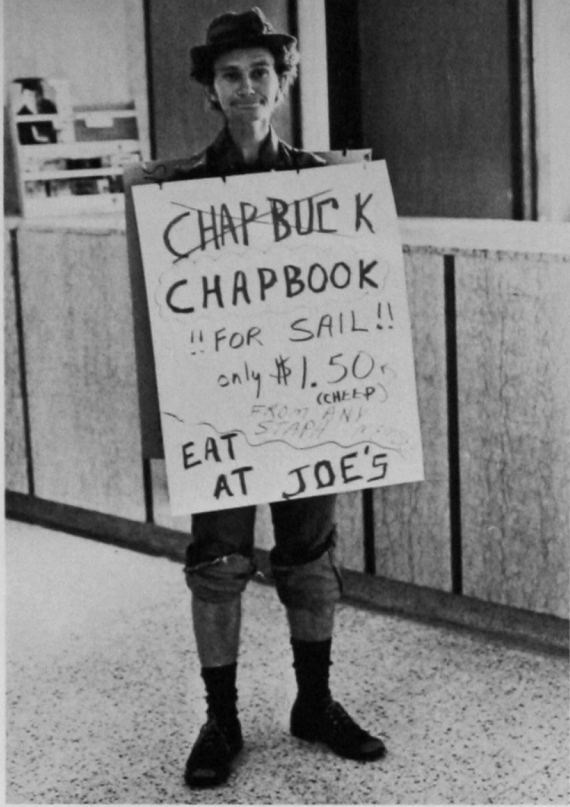 CHAPBUCK
CHAPBOOK
!!FOR SAIL!!
only $1.50
(CHEEP)
FROM ANY
EAT
AT JOE'S